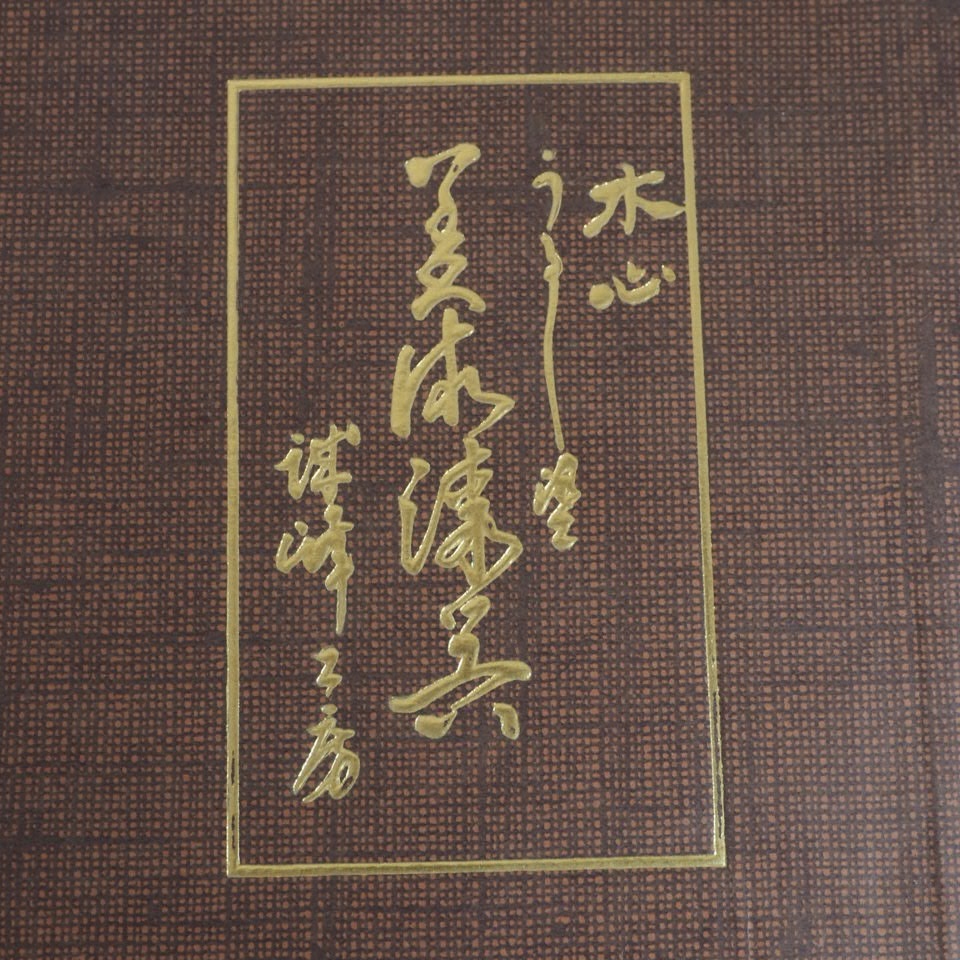 木心
うるし塗
美術漆器
誠峰工房